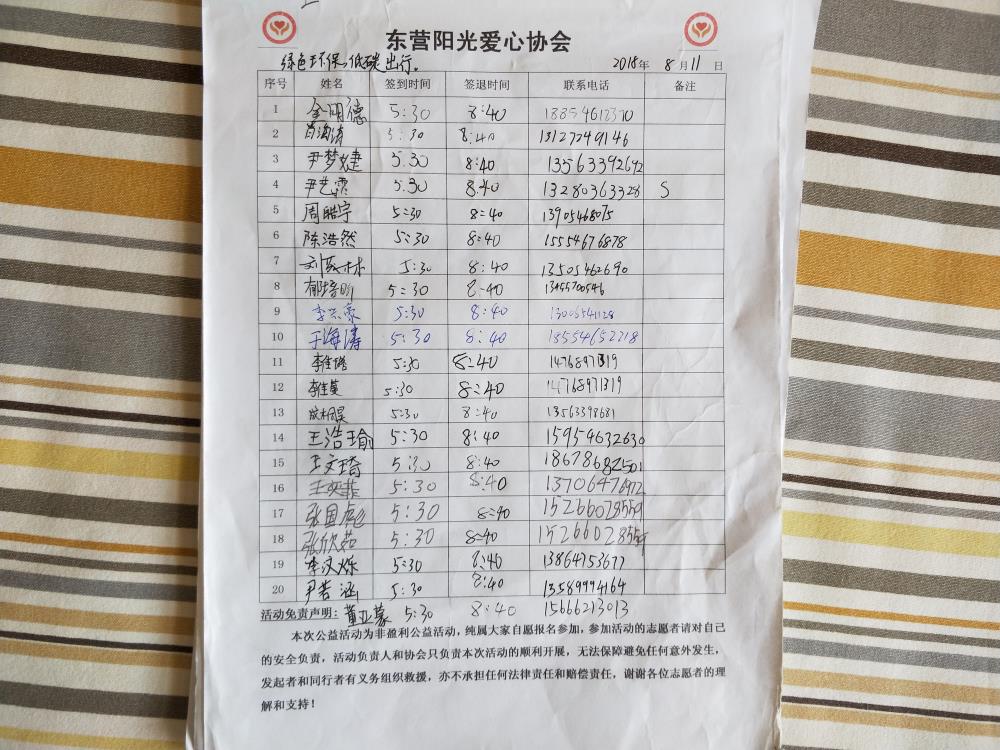 东营阳光爱心协会
绿色环保,低碳出行。 2018年 8月11日
序号 姓名 签到时间 签退时间 联系电话 备注
1 金明德 5:30 8:40 18854612370
2 5:30 8:40 13127249146
3 尹梦婕 5:30 8:40 13563392692
4 尹艺霏 5:30 8:40 13280363328 S
5 周皓宇 5:30 8:40 13905468075
6 陈浩然 5:30 8:40 15554676878
7 5:30 8:40 13505462690
8 郁培昕 5:30 8:40 13455700546
9 5:30 8:40
10 于海涛 5:30 8:40 13554652718
11 5:30 8:40 14768971319
12 5:30 8:40 14768971319
13 5:30 8:40 13563398681
14 王浩瑜 5:30 8:40 15954632630
15 王文琦 5:30 8:40 18678682501
16 王奕菲 5:30 8:40 13706476972
17 5:30 8:40 15266028559
18 张欣茹 5:30 8:40 15266028559
19 李汶烁 5:30 8:40 13864753677
20 尹若涵 5:30 8:40 13589994164
活动免责声明: 董亚蒙 5:30 8:40 15666213013
本次公益活动为非盈利公益活动，纯属大家自愿报名参加，参加活动的志愿者请对自己
的安全负责，活动负责人和协会只负责本次活动的顺利开展，无法保障避免任何意外发生，
发起者和同行者有义务组织救援，亦不承担任何法律责任和赔偿责任，谢谢各位志愿者的理
解和支持！